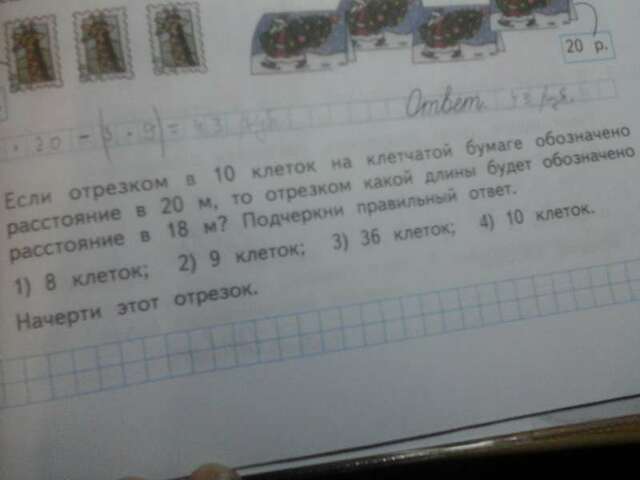 20 р.
· 20 − (3 · 9) = 43 руб.
Ответ. 43 руб.
Если отрезком в 10 клеток на клетчатой бумаге обозначено
расстояние в 20 м, то отрезком какой длины будет обозначено
расстояние в 18 м? Подчеркни правильный ответ.
1) 8 клеток; 2) 9 клеток; 3) 36 клеток; 4) 10 клеток.
Начерти этот отрезок.